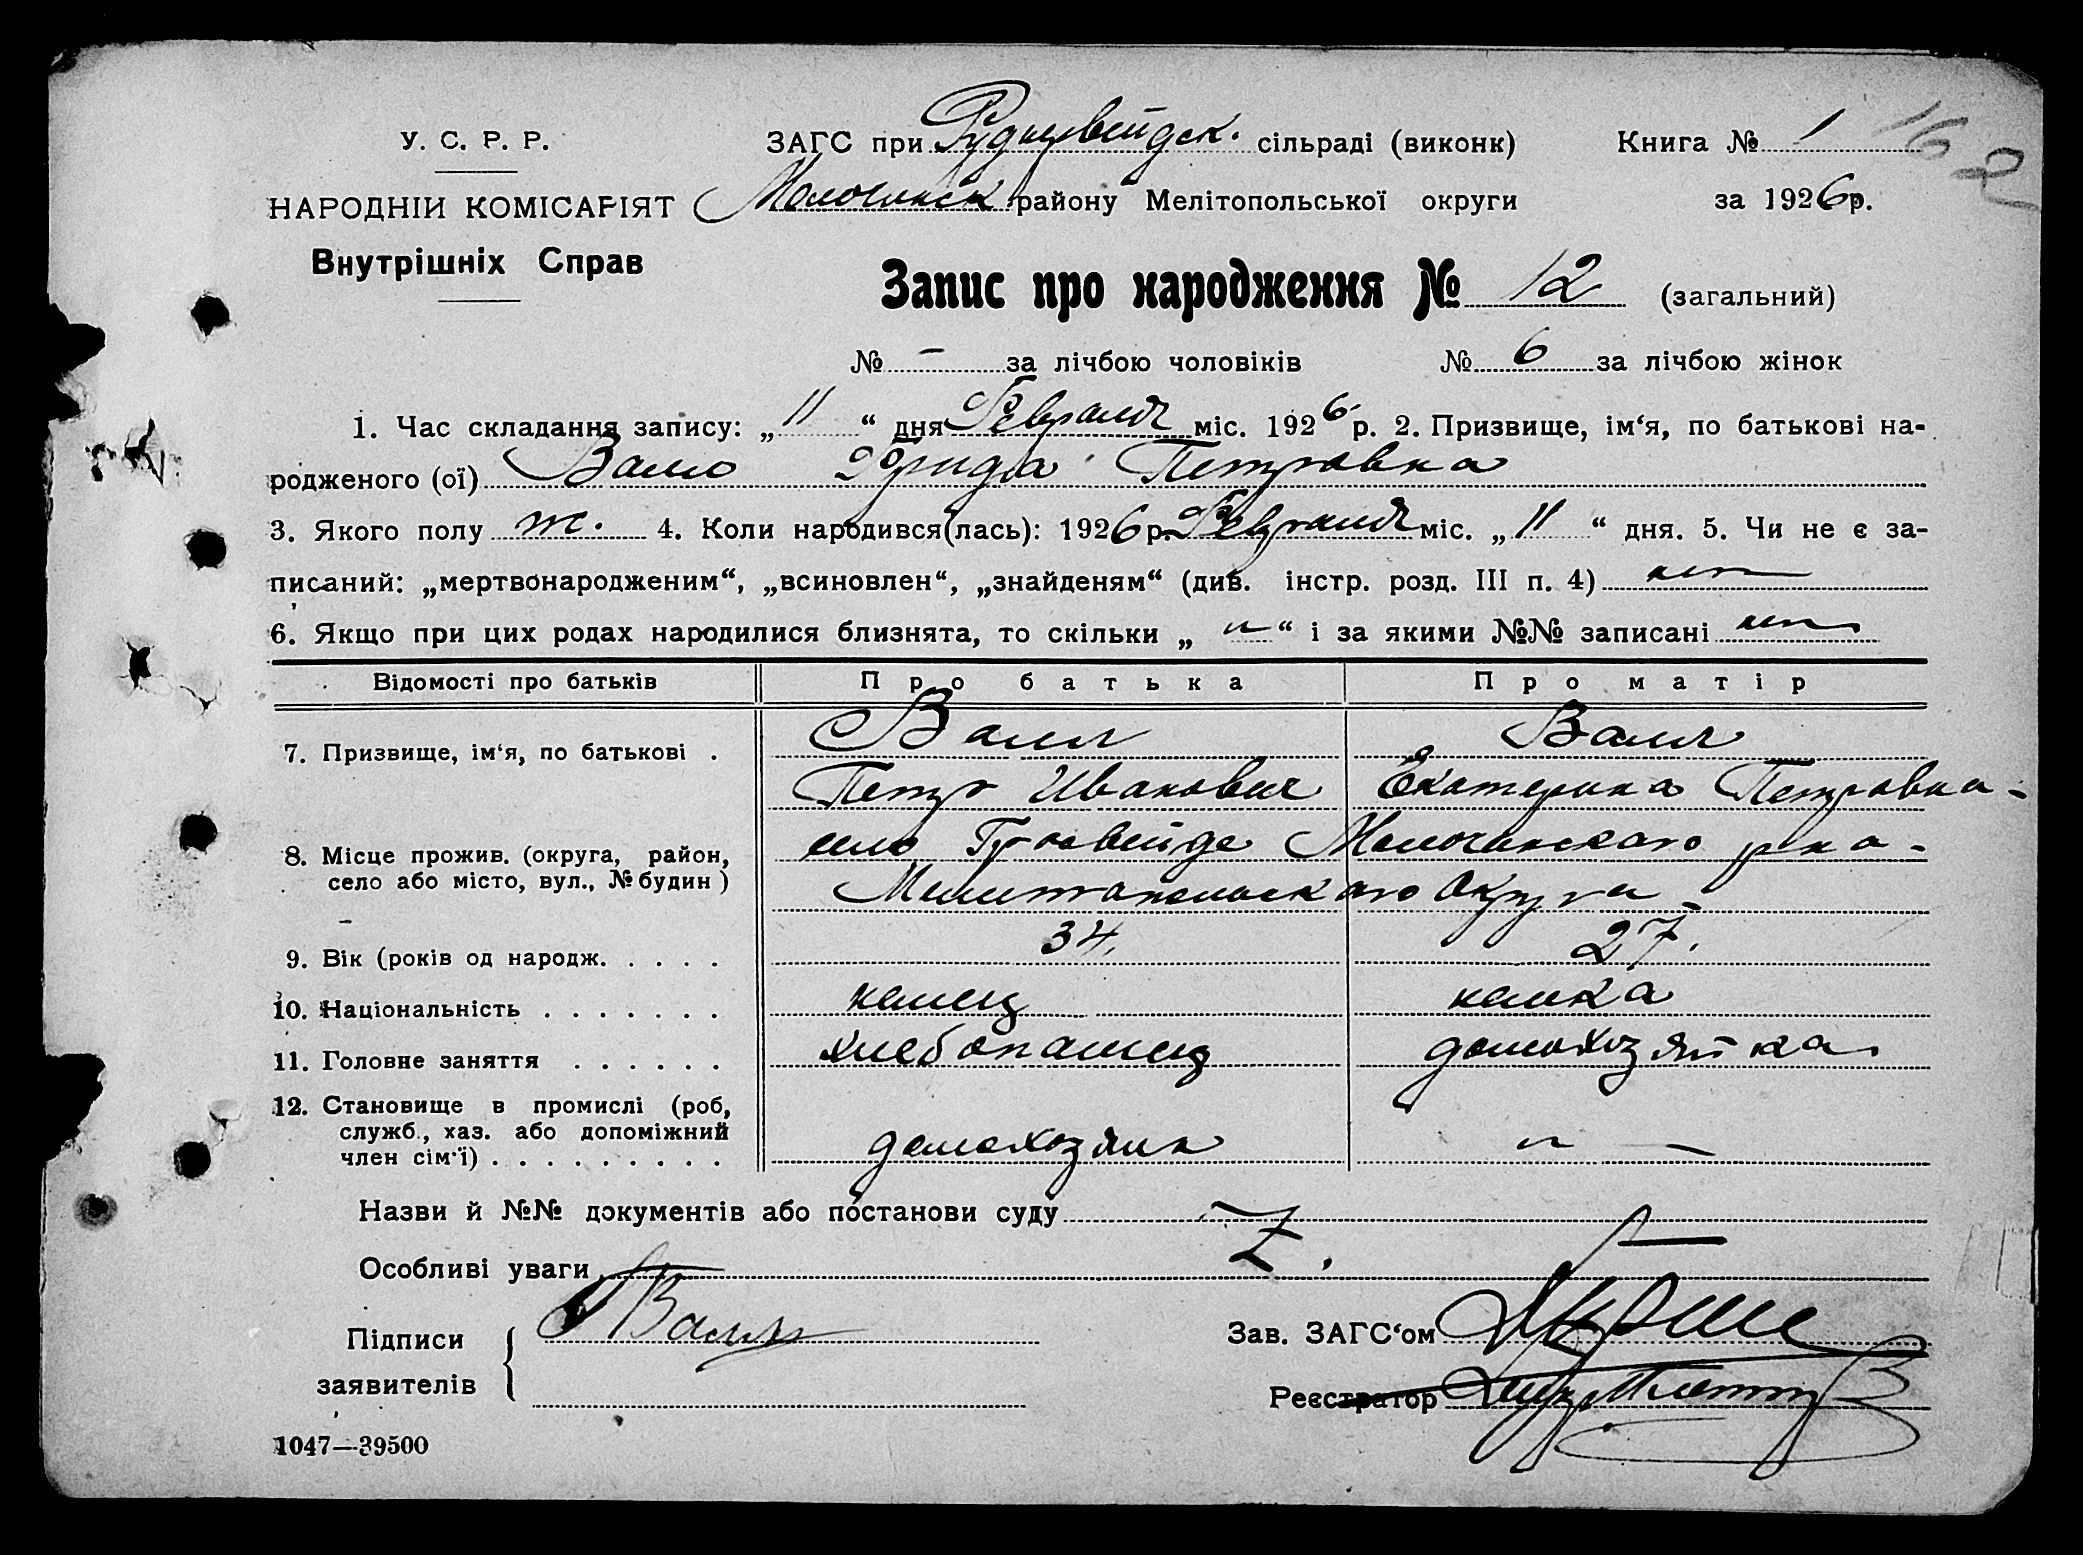 У. С. Р. Р.
НАРОДНІЙ КОМІСАРІЯТ
Внутрішніх Справ
ЗАГС при Рудневейдск. сільраді (виконк)
Молочанск району Мелітопольської округи
Книга № 1
162
за 1926 р.
Запис про народження № 12 (загальний)
№ — за лічбою чоловіків № 6 за лічбою жінок
1. Час складання запису: „11“ дня Февраля міс. 1926 р. 2. Призвище, ім‘я, по батькові на-
родженого (ої) Валл Фрида Петровна
3. Якого полу ж. 4. Коли народився(лась): 1926 р. Февраля міс. „11“ дня. 5. Чи не є за-
писаний: „мертвонародженим“, „всиновлен“, „знайденям“ (див. інстр. розд. III п. 4) нет
6. Якщо при цих родах народилися близнята, то скільки „ “ і за якими №№ записані нет
Відомості про батьків Про батька Про матір
7. Призвище, ім‘я, по батькові . Валл Валл
Петр Иванович Екатерина Петровна -
8. Місце прожив. (округа, район, село або місто, вул., № будин) село Гросвейде Молочанскаго р-на -
Мелитопольскаго Округа -
9. Вік (років од народж. . . . . 34. 27.
10. Національність . . . . . . . немец немка
11. Головне заняття . . . . . . хлебопашец домохозяйка
12. Становище в промислі (роб,
служб., хаз. або допоміжний
член сім‘ї) . . . . . . . . . домохозяин " —
Назви й №№ документів або постанови суду
Особливі уваги
Підписи заявителів Валл
Зав. ЗАГС‘ом
Реєстратор
1047—39500